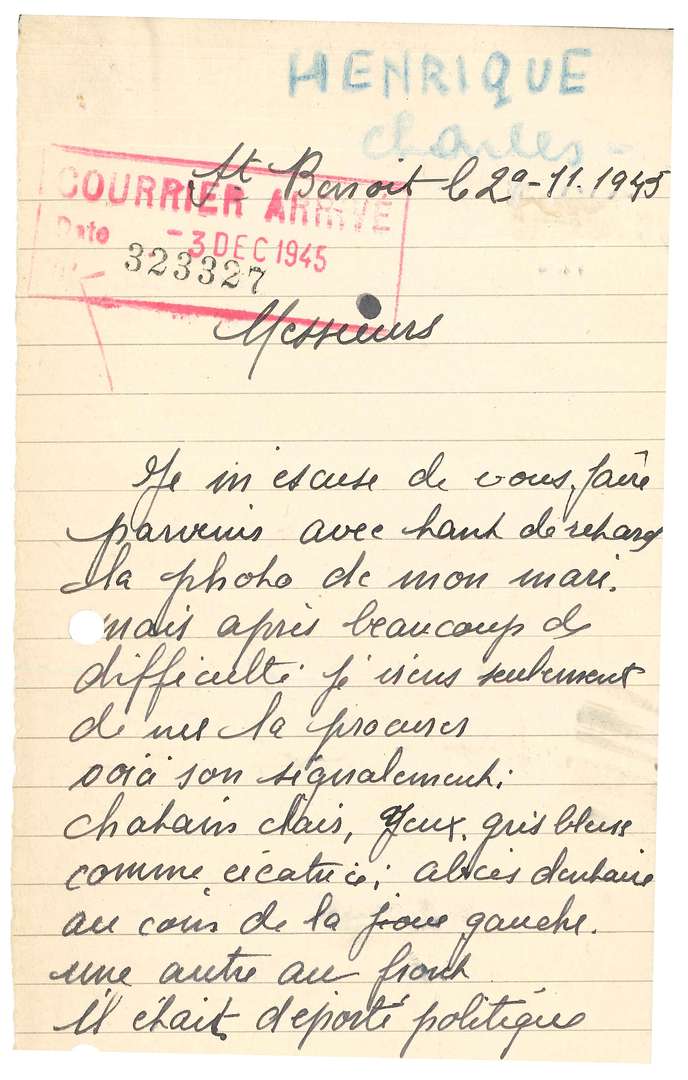 HENRIQUE
Charles -
St Benoit le 29-11.1945
COURRIER ARRIVÉ
Date - 3 DEC 1945
323327
Messieurs
Je m'escuse de vous, faire
parvenir avec tant de retard
la photo de mon mari.
mais après beaucoup de
difficulté je viens seulement
de me la procurer
voici son signalement:
chatain clair, Yeux, gris bleus
comme cicatrice; abcès dentaire
au coin de la joue gauche.
une autre au front
Il était déporté politique